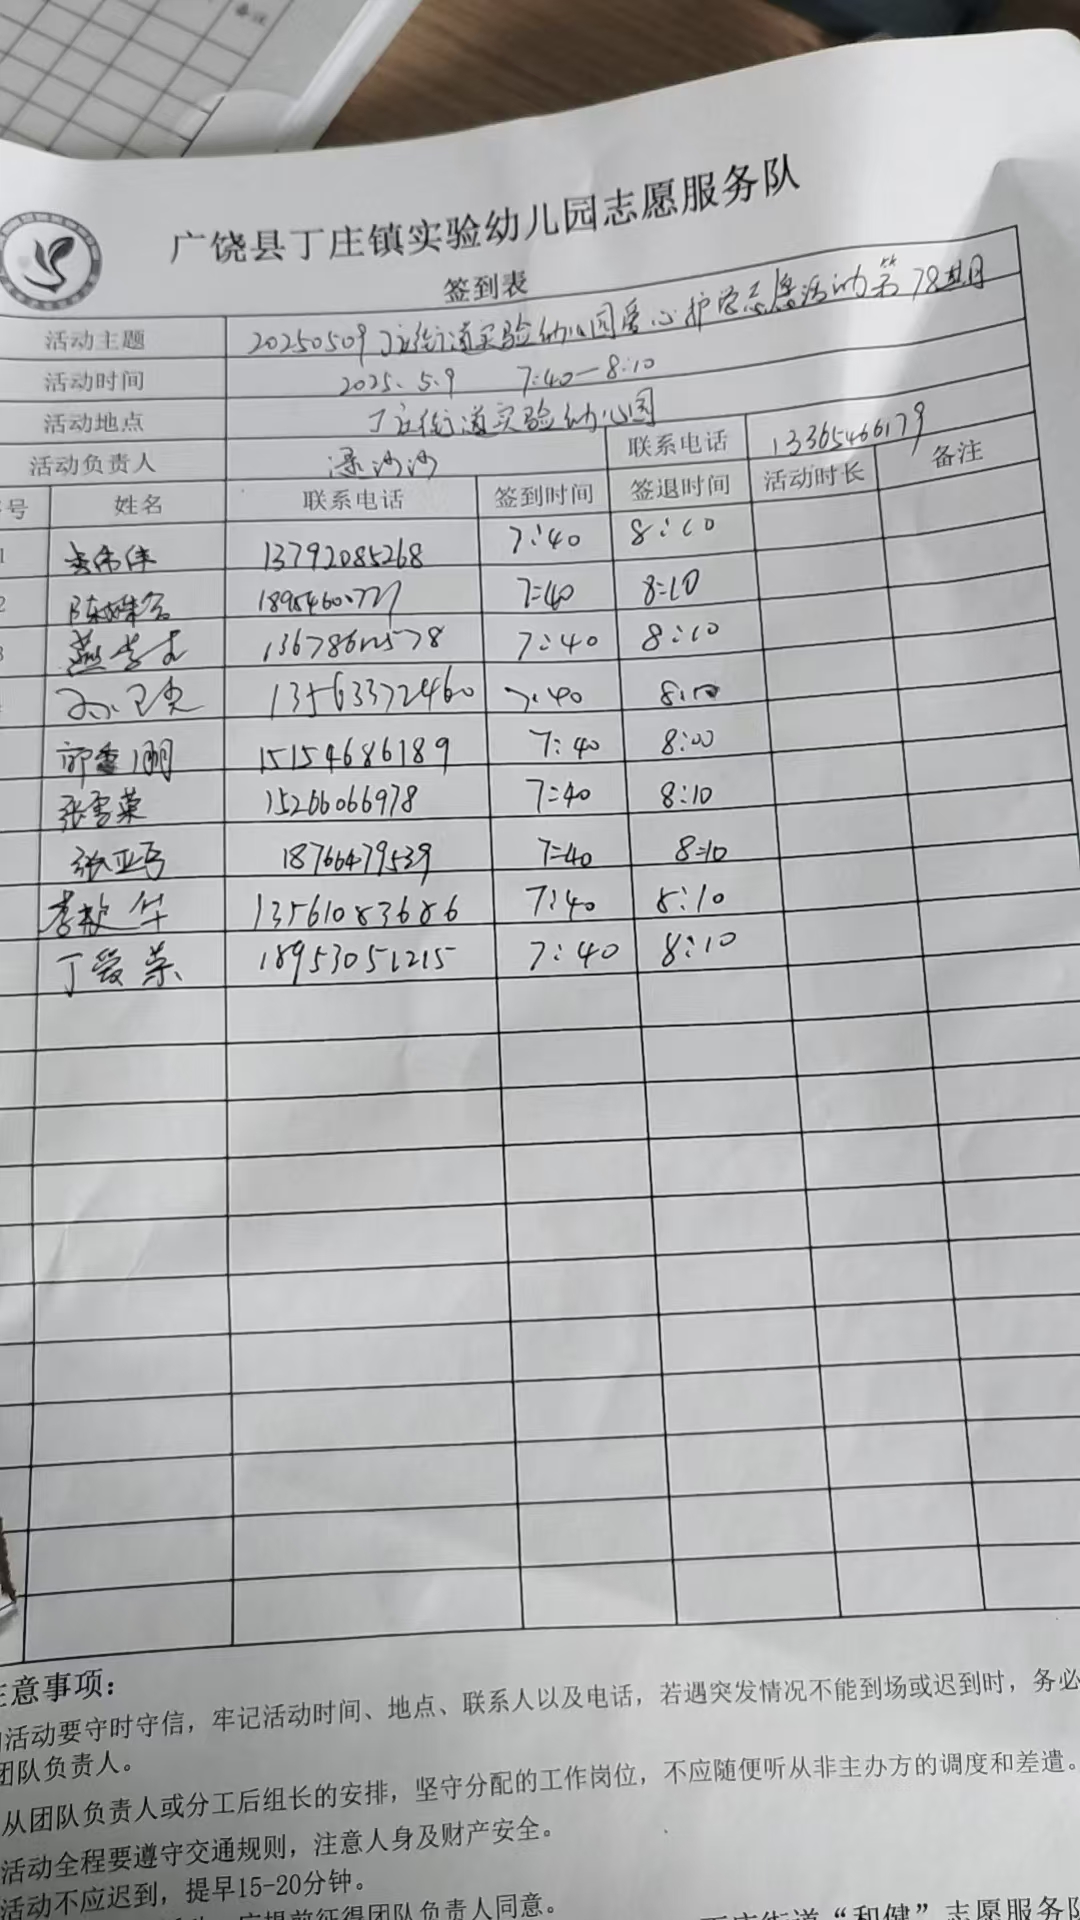 备注
广饶县丁庄镇实验幼儿园志愿服务队
签到表
活动主题 20250509丁庄街道实验幼儿园爱心护学志愿活动第78期
活动时间 2025.5.9 7:40—8:10
活动地点 丁庄街道实验幼儿园
活动负责人 沙沙 联系电话 13365466179
号 姓名 联系电话 签到时间 签退时间 活动时长 备注
1 13792085268 7:40 8:10
2 陈 7:40 8:10
3 燕 7:40 8:10
孙卫 13563372460 7:40 8:10
郭 15154686189 7:40 8:00
张雪莱 15266066978 7:40 8:10
张亚 18766479539 7:40 8:10
李 华 13561083686 7:40 8:10
丁爱荣 18953051215 7:40 8:10
注意事项：
活动要守时守信，牢记活动时间、地点、联系人以及电话，若遇突发情况不能到场或迟到时，务必
团队负责人。
从团队负责人或分工后组长的安排，坚守分配的工作岗位，不应随便听从非主办方的调度和差遣。
活动全程要遵守交通规则，注意人身及财产安全。
活动不应迟到，提早15-20分钟。
应提前征得团队负责人同意。
街道“和健”志愿服务队